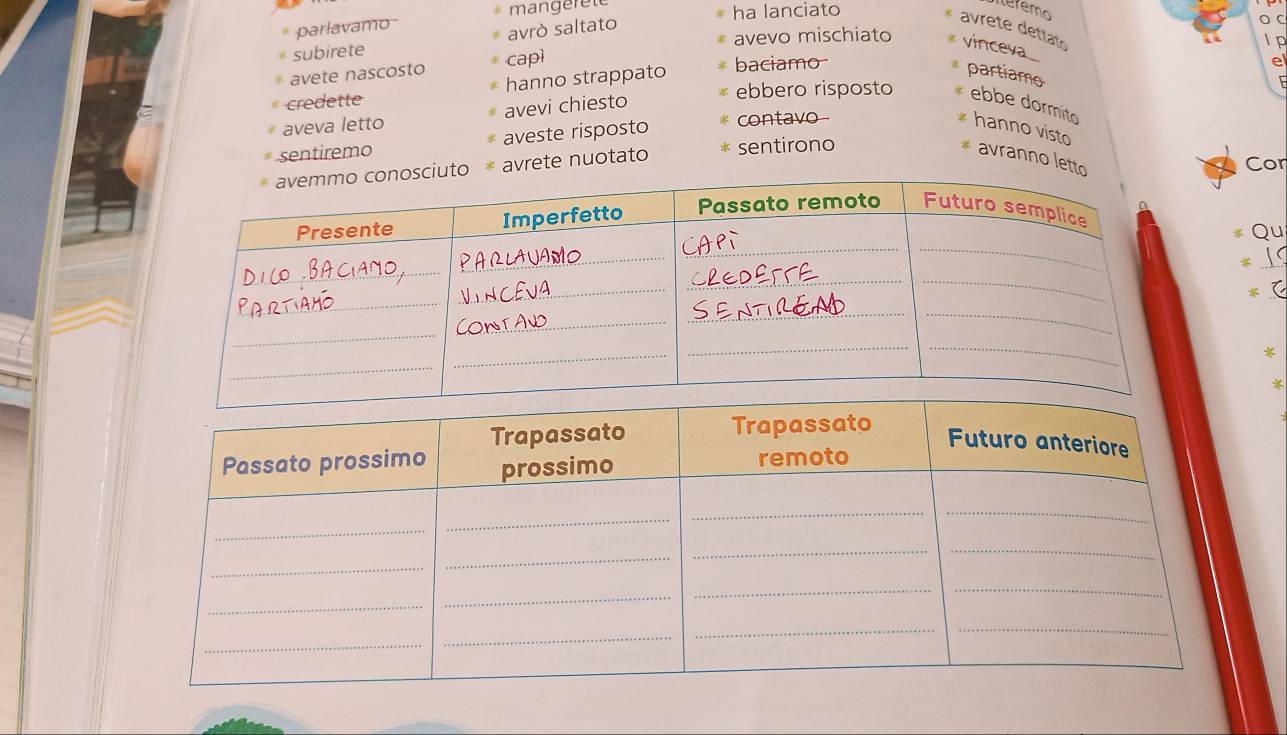 * parlavamo
* subirete
* avete nascosto
* credette
* aveva letto
* sentiremo
* avemmo conosciuto
* avrò saltato
* capì
* hanno strappato
* avevi chiesto
* aveste risposto
* avrete nuotato
* ha lanciato
* avevo mischiato
* baciamo
* ebbero risposto
* contavo
* sentirono
* avrete dettato
* vinceva
* partiamo
* ebbe dormito
* hanno visto
* avranno letto
Presente Imperfetto Passato remoto Futuro semplice
DICO BACIAMO, PARLAVAMO CAPÌ
PARTIAMO VINCEVA CREDETTE
CONTAVO SENTIREMO
Passato prossimo Trapassato prossimo Trapassato remoto Futuro anteriore